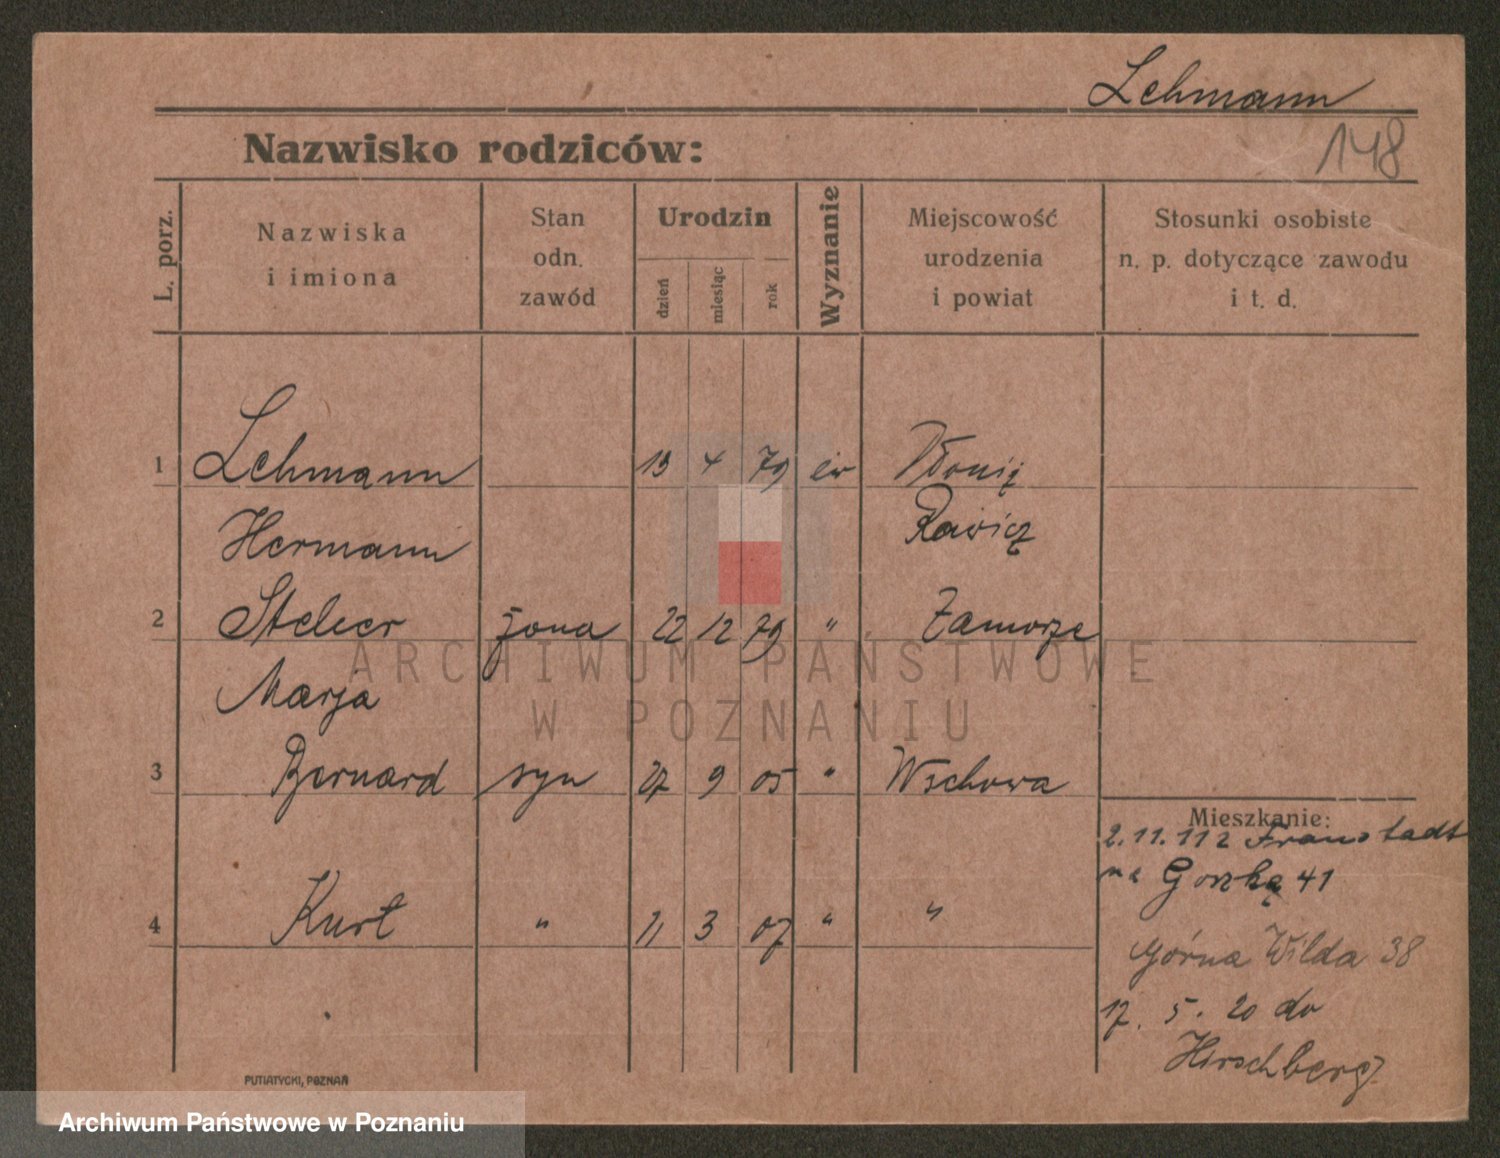 Lehmann
148
Nazwisko rodziców:
L. porz.
Nazwiska
i imiona
Stan
odn.
zawód
Urodzin
dzień
miesiąc
rok
Wyznanie
Miejscowość
urodzenia
i powiat
Stosunki osobiste
n. p. dotyczące zawodu
i t. d.
1 Lehmann 4 79 ew
Hermann Rawicz
2 żona 22 12 79 " Zamorze
Marja
3 Bernard syn 27 9 05 " Wschowa
Mieszkanie:
2. 11. 112 Fraustadt
na 41
4 Kurt " 11 3 07 " "
Górna Wilda 38
17. 5. 20 do
Hirschberg
PUTIATYCKI, POZNAŃ
ARCHIWUM PAŃSTWOWE
W POZNANIU
Archiwum Państwowe w Poznaniu